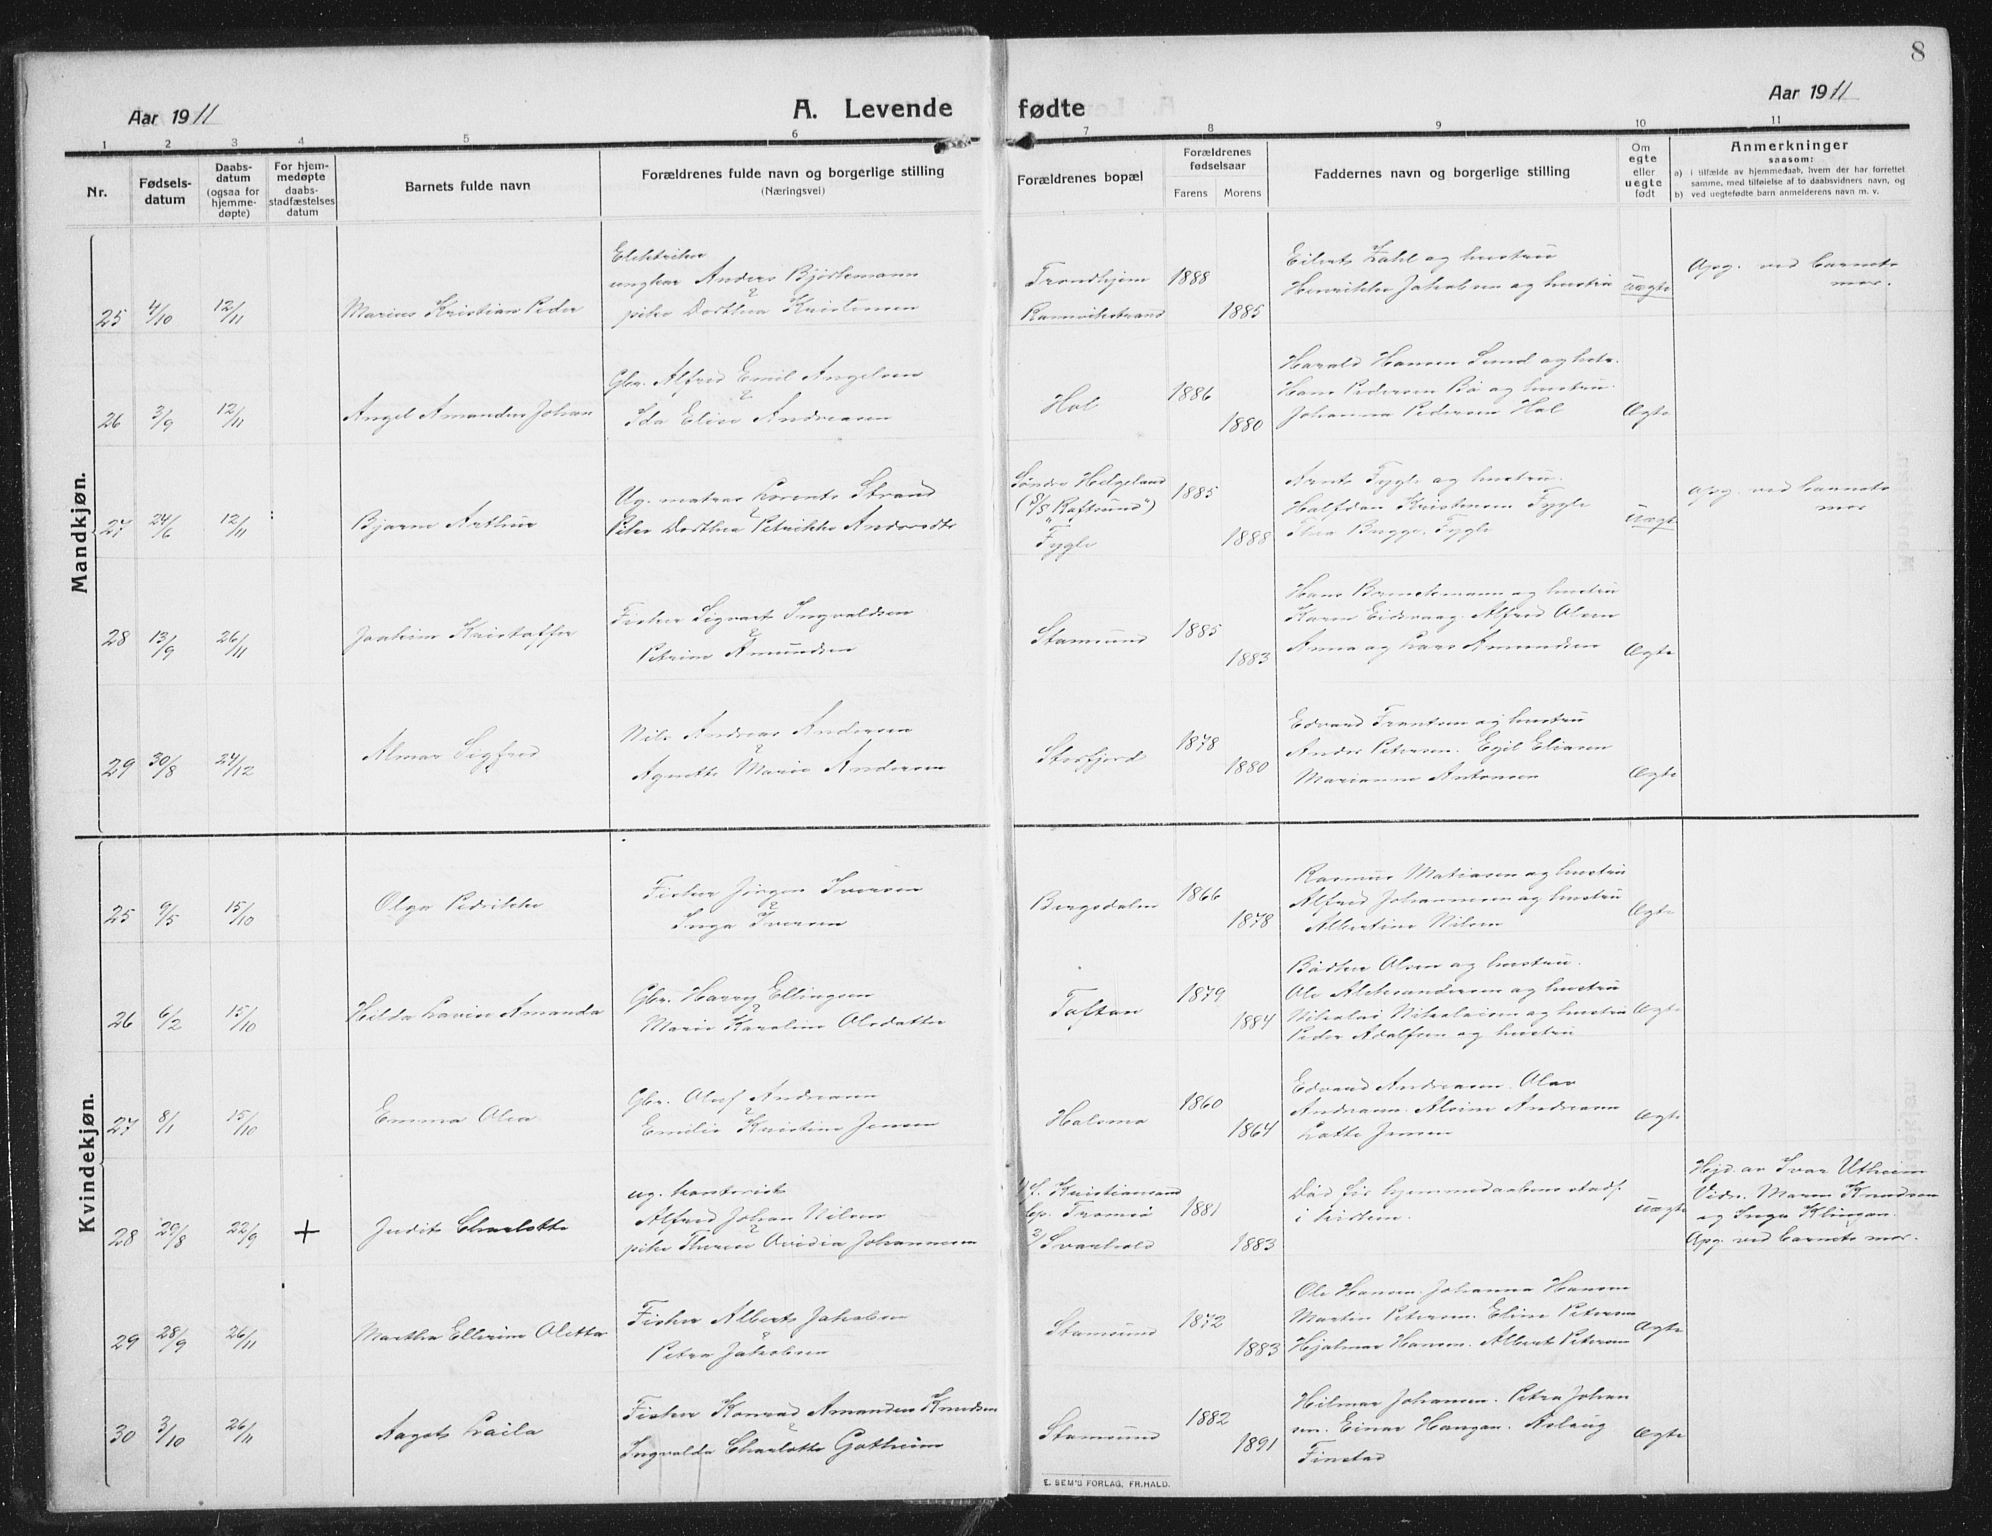 8
Aar 1911
A. Levende fødte
Aar 1911
1 2 3 4 5 6 7 8 9 10 11
Nr.
Fødsels-
datum
Daabs-
datum
(ogsaa for
hjemme-
døpte)
For hjem-
medøpte
daabs-
stadfæstelses
datum
Barnets fulde navn
Forældrenes fulde navn og borgerlige stilling
(Næringsvei)
Forældrenes bopæl
Forældrenes
fødselsaar
Farens Morens
Faddernes navn og borgerlige stilling
Om
egte
eller
uegte
født
Anmerkninger
saasom:
a) i tilfælde av hjemmedaab, hvem der har forrettet
samme, med tilføielse af to daabsvidners navn, og
b) ved uegtefødte barn anmelderens navn m. v.
Mandkjøn.
25 4/10 12/11 Marius Kristian Peder
Elektriker
ungkar Anders Björkmann
pike Dorthea Kristensen
Trondhjem
1888
1885
Eilert Zahl og hustru
Henrikke Jakobsen og hustru
uægte
Opg. ved barnets
mor.
26 3/9 12/11 Angel Amandus Johan
Gbr. Alfred Emil Angelsen
Ida Elise Andreasen
Hol
1886
1880
Harald Hansen Sund og hstr.
Hans Pedersen Bö og hustru.
Johanna Pedersen Hol
Ægte
27 24/6 12/11 Bjarne Arthur
Ug. matros Lorents Strand
Pike Dorthea Petrikke
Søndre Helgeland
(S/S "Raftsund")
Fygle
1885
1888
Arnt Fygle og hustru.
Halfdan Kristensen Fygle
Thea Brygge, Fygle
uægte
Opg. ved barnets
mor
28 13/9 26/11 Joakim Kristoffer
Fisker Sigvart Ingvaldsen
Petrine Amundsen
Stamsund
1885
1883
Hans og hustru
Karen Eidsvaag. Alfred Olsen
Anna og Lars Amundsen
Ægte
29 30/8 24/12 Almar Sigfred
Nils Andreas Andersen
Agnethe Marie Andersen
Storfjord
1878
1880
Edvard Frantsen og hustru
Anders Petersen. Egil Eliasen
Marianne Antonsen
Ægte
Kvindekjøn.
25 9/5 15/10 Olga Pedrikke
Fisker Jörgen Iversen
Inga Iversen
Bergsdalen
1866
1878
Rasmus Matiasen og hustru
Alfred Johannesen og hustru
Albertine Nilsen
Ægte
26 6/2 15/10 Hilda Lovise Amanda
Gbr. Harry Ellingsen
Marie Karoline Olsdatter
Toften
1879
1884
Bödker Olsen og hustru.
Ole Aleksandersen og hustru
Nikolai Nikolaisen og hustru
Peder Adolfsen og hustru
Ægte
27 8/1 15/10 Emma Olea
Gbr. Oluf Andreasen
Emilie Kristine Jensen
Holsmo
1860
1864
Edvard Andreasen. Olav
Andreasen. Alvine Andreasen
Lotte Jensen
Ægte
28 29/8 22/9 + Judit Charlotte
ug. kontorist
Alfred Johan Nilsen
pike Therese Ovidia Johannesen
1/ f. Kristiansund
bp. Tromsö
2/ Svarholt
1881
1883
Död før hjemmedaabens stadf.
i kirken.
uægte
Hjd. av Ivar Utheim
Vidn. Maren Knudsen
og Inga Klingan.
Opg. ved barnets mor.
29 28/9 26/11 Martha Ellerine Oletta
Fisker Albert Jakobsen
Petra Jakobsen
Stamsund
1872
1883
Ole Hansen. Johanna Hansen
Martin Petersen. Eline Petersen
Hjalmar Hansen. Albert Petersen
Ægte
30 3/10 26/11 Aagot Laila
Fisker Konrad Amandus Knudsen
Ingvalda Charlotte Gotheim
Stamsund
1882
1891
Hilmar Johansen. Petra Johan
sen. Einar Haugan. Aslaug
Finstad
Ægte
E. SEM'S FORLAG, FR.HALD.